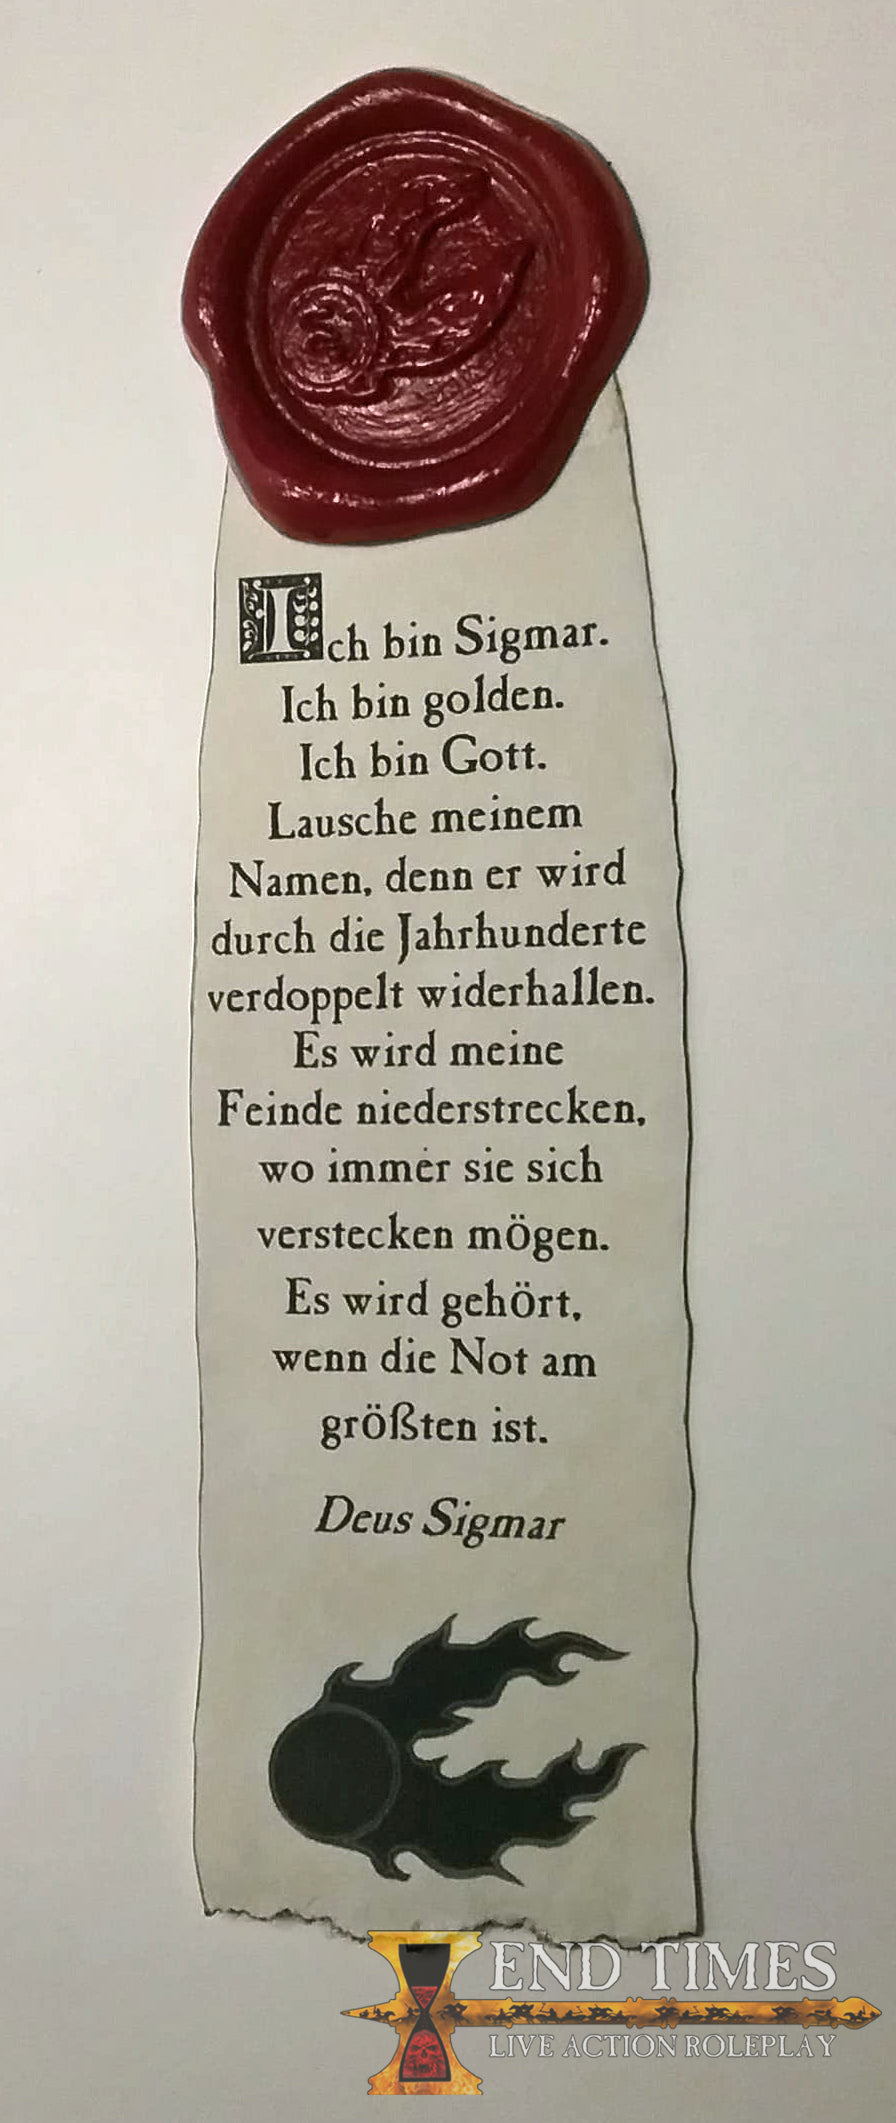 Ich bin Sigmar.
Ich bin golden.
Ich bin Gott.
Lausche meinem
Namen, denn er wird
durch die Jahrhunderte
verdoppelt widerhallen.
Es wird meine
Feinde niederstrecken,
wo immer sie sich
verstecken mögen.
Es wird gehört,
wenn die Not am
größten ist.
Deus Sigmar
END TIMES
LIVE ACTION ROLEPLAY